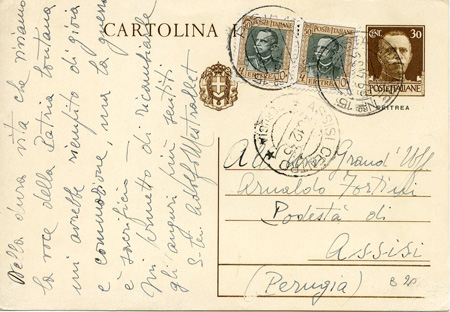 CARTOLINA
POSTE ITALIANE
POSTE ITALIANE
CENT. 30
POSTE ITALIANE
ERITREA
ASSISI
Della dura vita che viviamo
la voce della Patria lontana
mi avrebbe riempito di gioia
e commozione, ma la guerra
è sacrificio
mi permetto di ricambiarle
gli auguri più sentiti
S. Ten.
Grand' Uff
Arnaldo Fortini
Podestà di
Assisi
(Perugia)